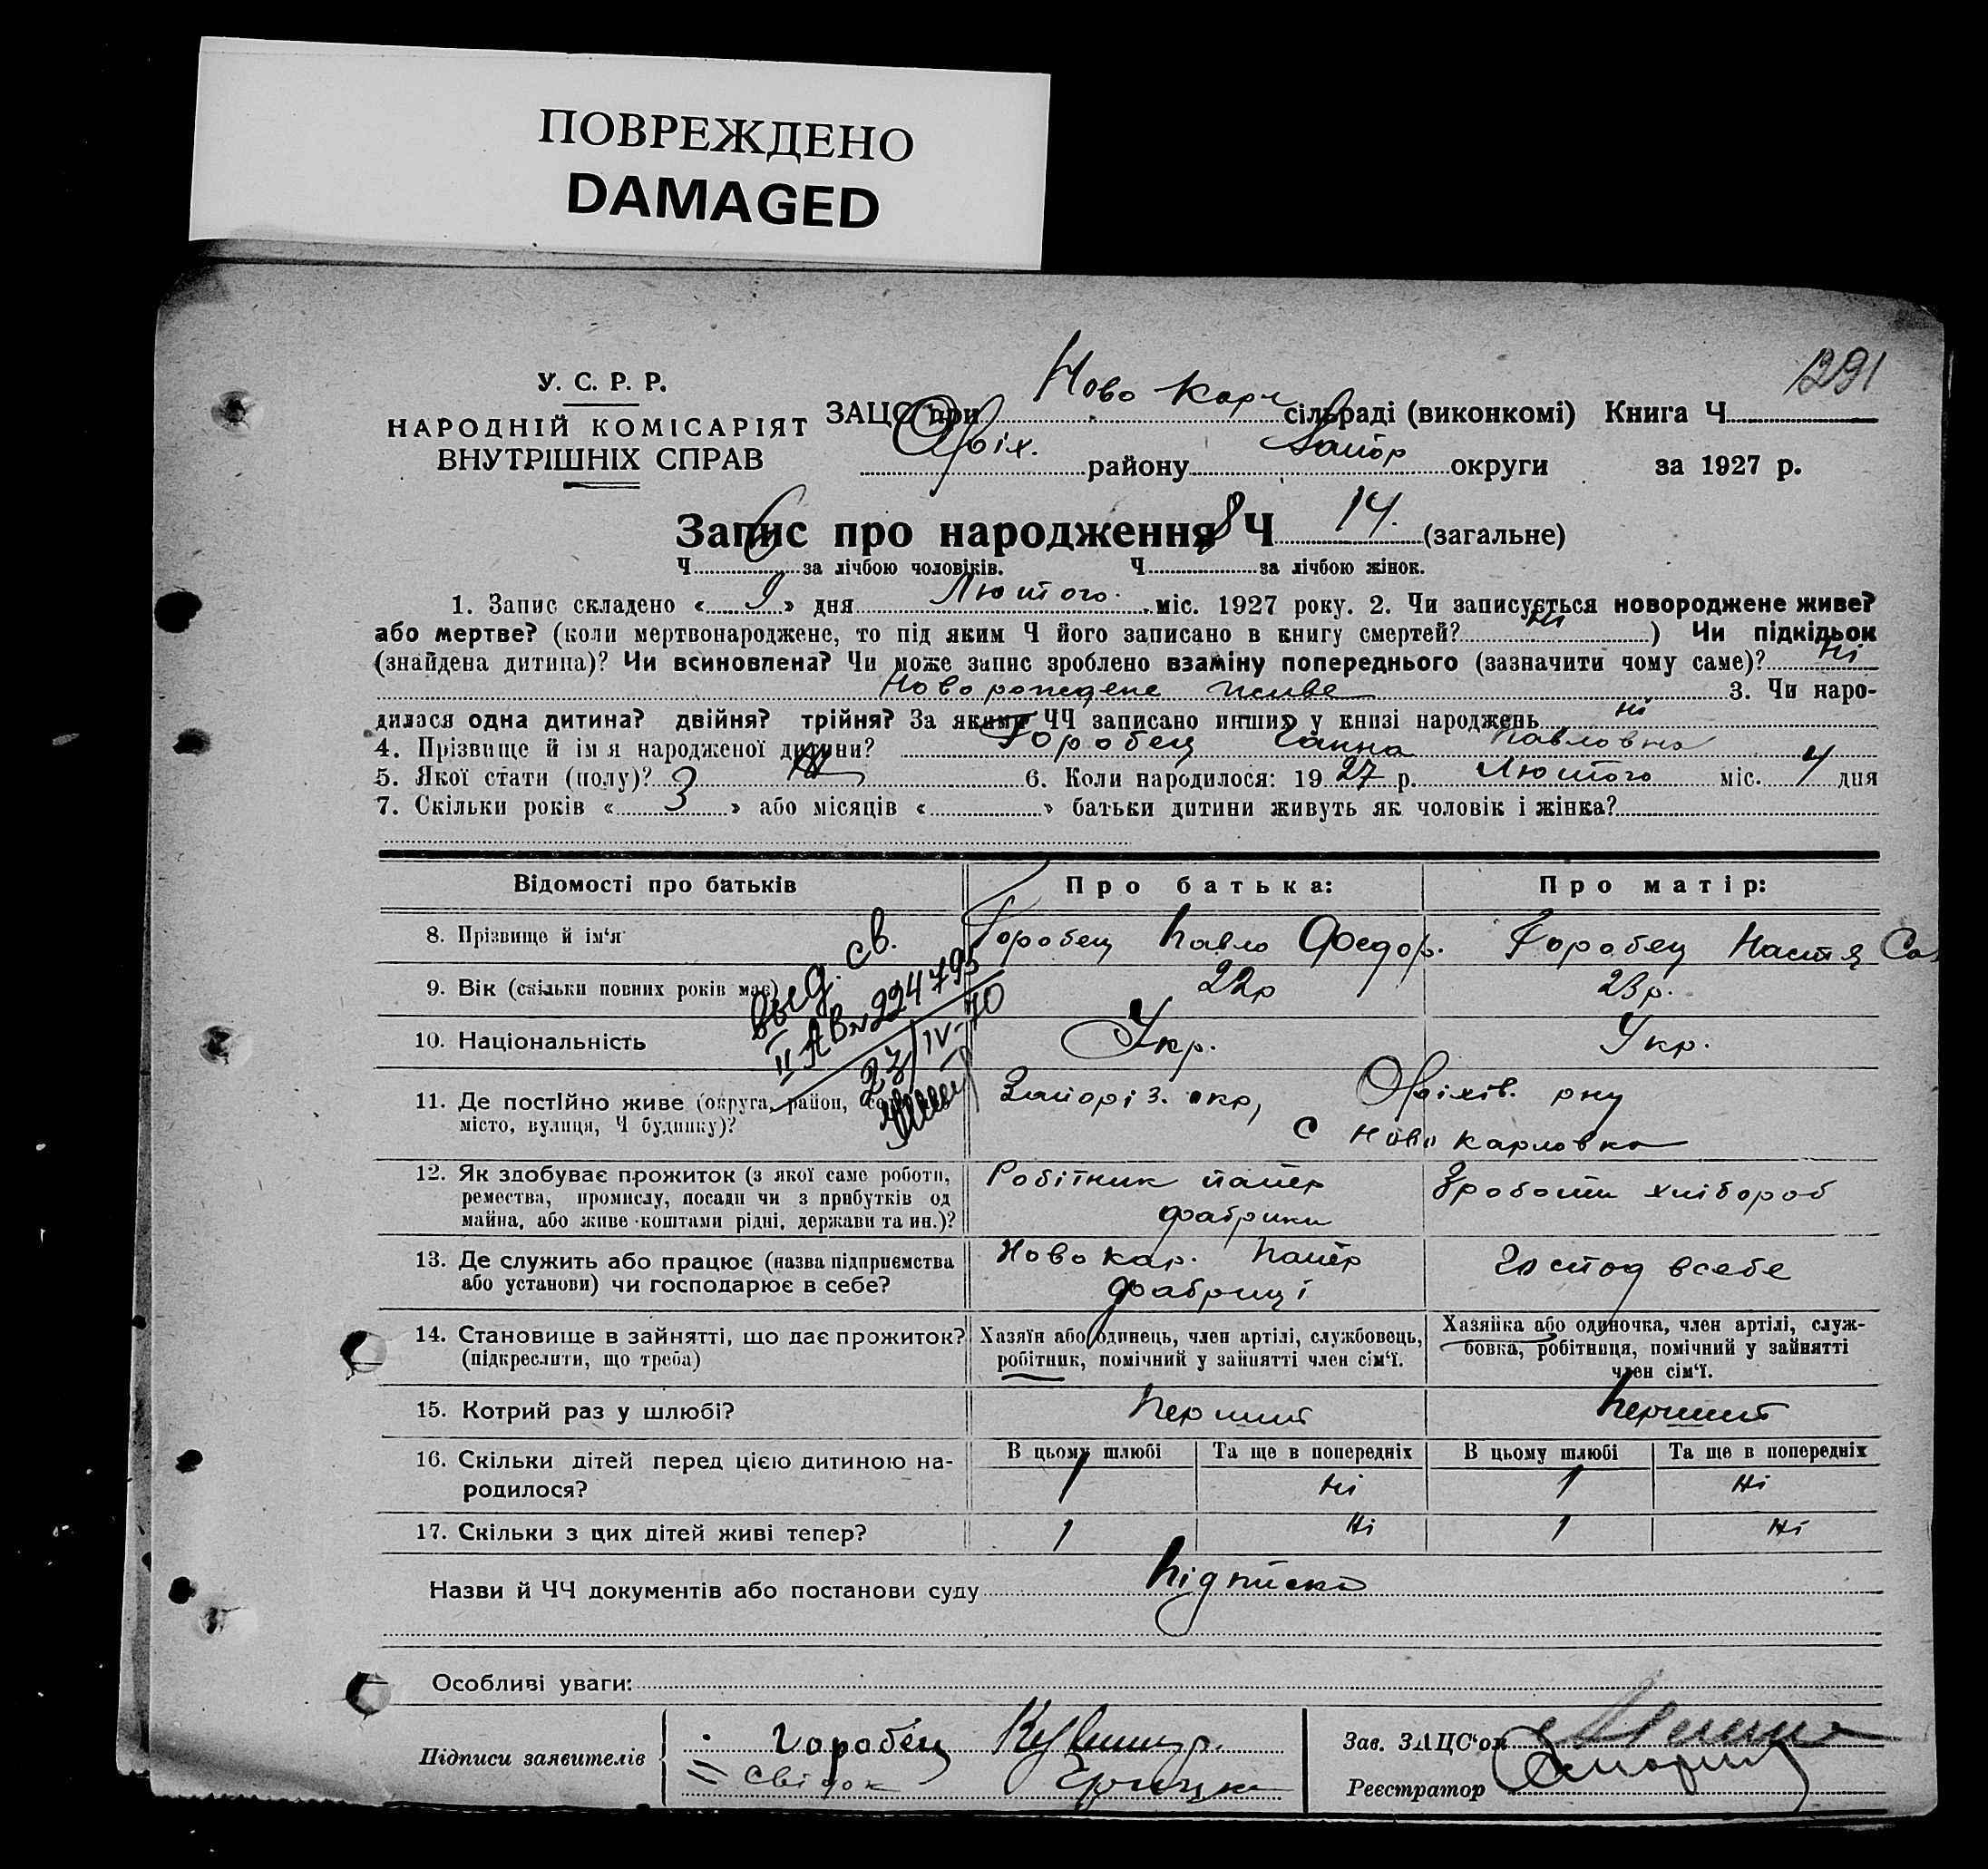 ПОВРЕЖДЕНО
DAMAGED
1291
У. С. Р. Р.
НАРОДНІЙ КОМІСАРІЯТ
ВНУТРІШНІХ СПРАВ
ЗАЦС при Ново Карл сільраді (виконкомі) Книга Ч
Оріх. району Запор округи за 1927 р.
Запис про народження Ч 14. (загальне)
Ч 6 за лічбою чоловіків. Ч 8 за лічбою жінок.
1. Запис складено « 9 » дня Лютого міс. 1927 року. 2. Чи записується новороджене живе?
або мертве? (коли мертвонароджене, то під яким Ч його записано в книгу смертей? Ні ) Чи підкідьок
(знайдена дитина)? Чи всиновлена? Чи може запис зроблено взаміну попереднього (зазначити чому саме)? Ні
Новорождене живе 3. Чи наро-
дилася одна дитина? двійня? трійня? За якими ЧЧ записано инших у книзі народжень Ні
4. Прізвище й ім я народженої дитини? Горобец Ганна Павловна
5. Якої стати (полу)? Ж 6. Коли народилося: 1927 р. Лютого міс. 4 дня
7. Скільки років « 3 » або місяців « » батьки дитини живуть як чоловік і жінка?
Відомості про батьків Про батька: Про матір:
8. Прізвище й ім‘я Горобец Павло Федор. Горобец Настя
выд. св.
II АВ № 224795
23/IV-70
9. Вік (скільки повних років має) 22р 23р.
10. Національність Укр. Укр.
11. Де постійно живе (округа, район, село
місто, вулиця, Ч будинку)?
Запоріз. окр, Оріхів. рну
с Ново Карловка
12. Як здобуває прожиток (з якої саме роботи,
ремества, промислу, посади чи з прибутків од
майна, або живе коштами рідні, держави та ин.)?
Робітник папер
фабрики
Зроботи хлібороб
13. Де служить або працює (назва підприємства
або установи) чи господарює в себе?
Новокар. Папер
фабриці
Господ всебе
14. Становище в зайнятті, що дає прожиток?
(підкреслити, що треба)
Хазяїн або одинець, член артілі, службовець,
робітник, помічний у зайнятті член сім‘ї.
Хазяйка або одиночка, член артілі, служ-
бовка, робітниця, помічний у зайнятті
член сім‘ї.
15. Котрий раз у шлюбі? Перший Перший
16. Скільки дітей перед цією дитиною на-
родилося?
В цьому шлюбі Та ще в попередніх В цьому шлюбі Та ще в попередніх
1 Ні 1 Ні
17. Скільки з цих дітей живі тепер? 1 Ні 1 Ні
Назви й ЧЧ документів або постанови суду Підписка
Особливі уваги:
Підписи заявителів
Горобец
Свідок
Зав. ЗАЦС‘ом
Реєстратор